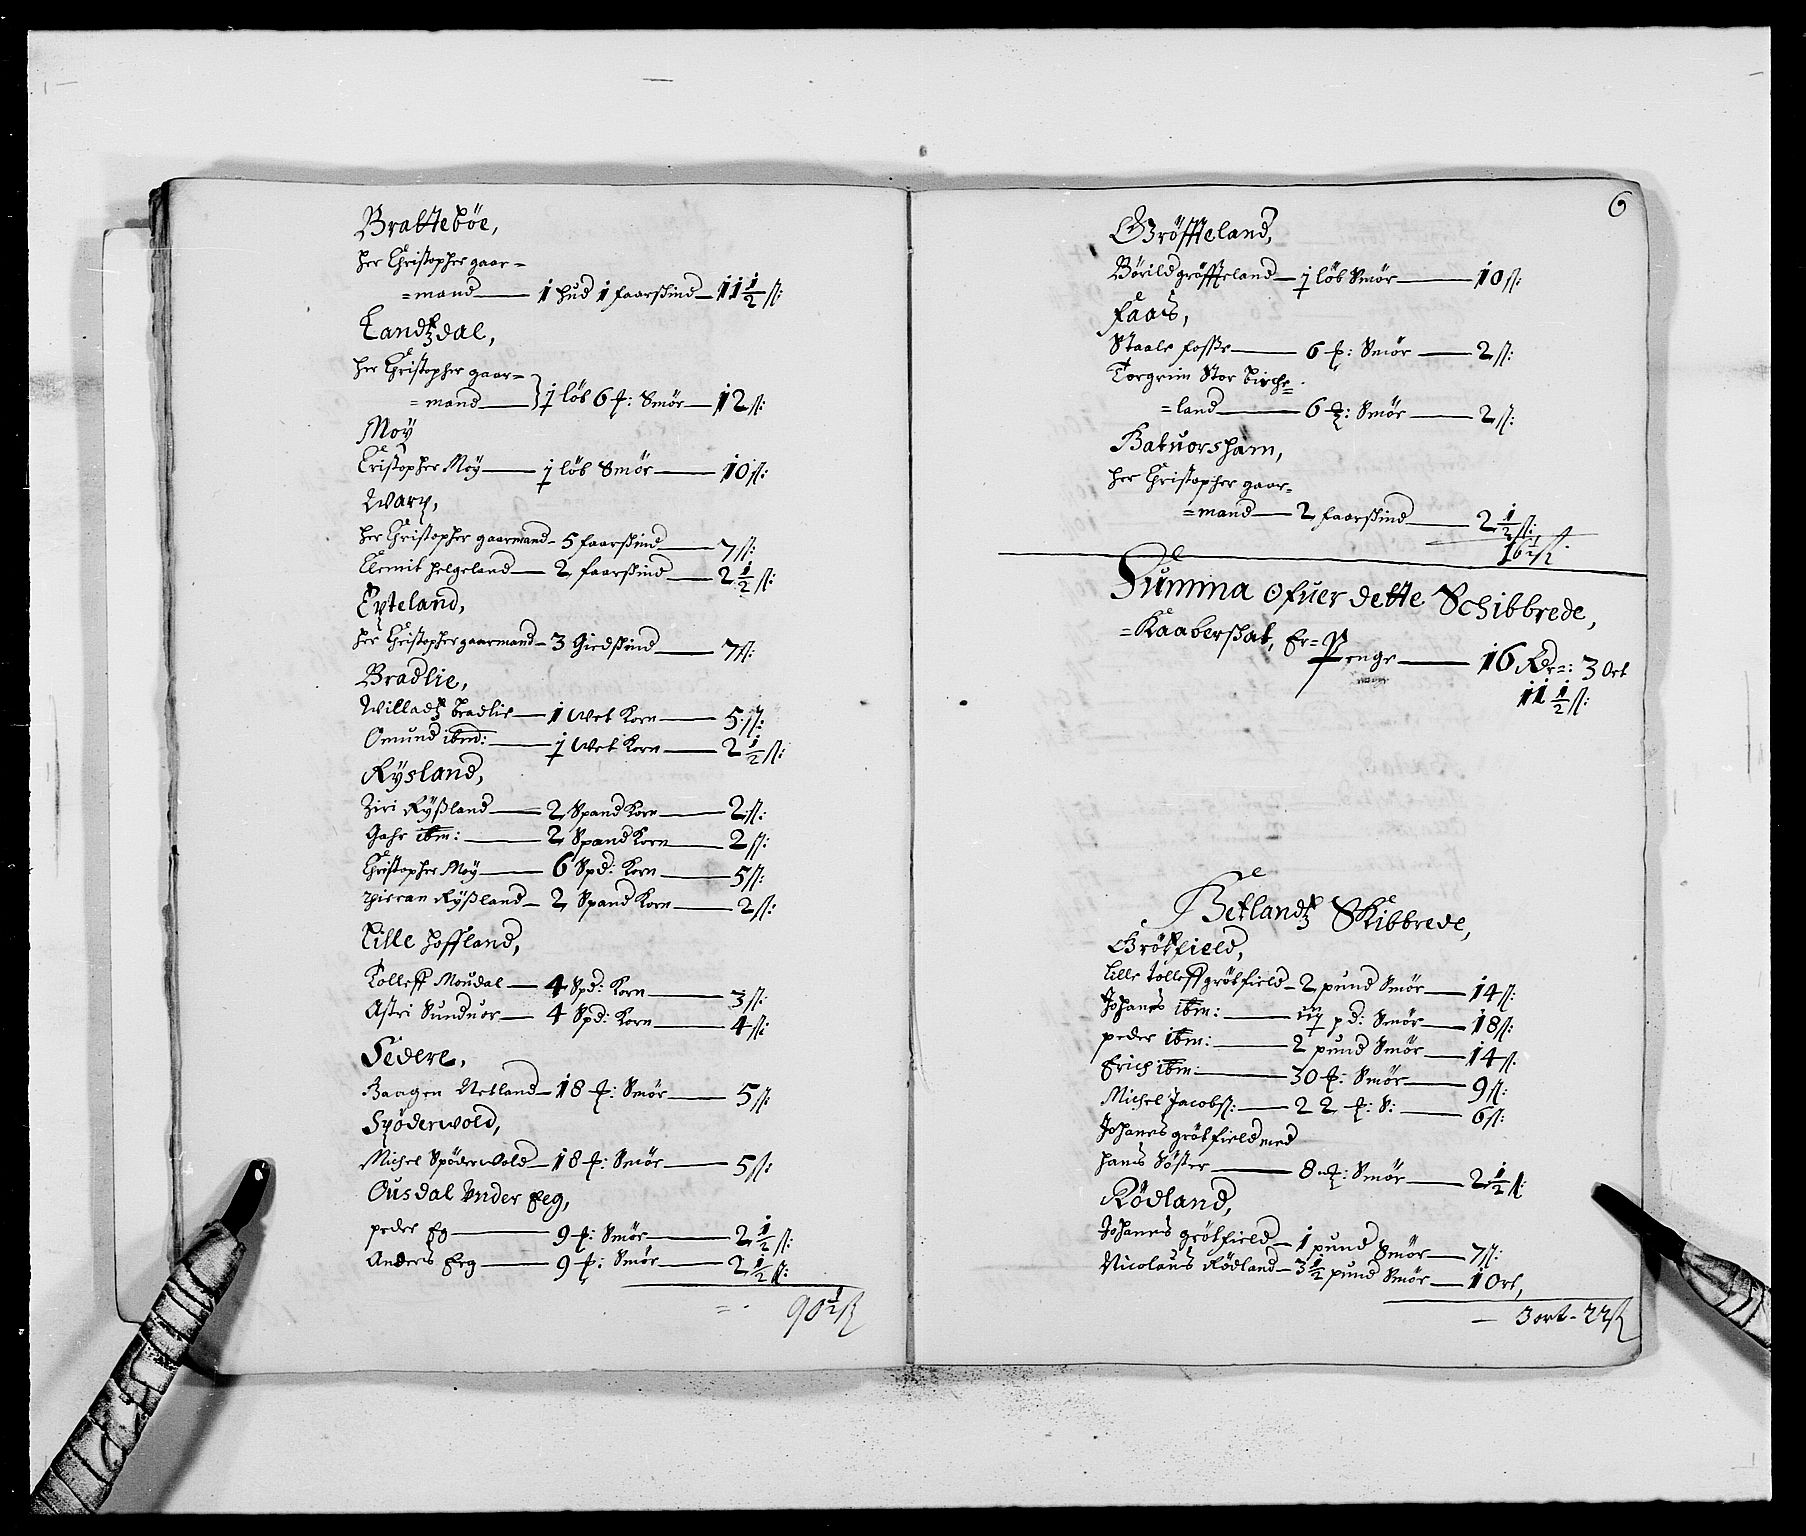 Brattebøe,
her Christopher gaar=
=mand — 1 hud 1 faarskind — 11 1/2 ß:
Landtzdal,
her Christopher gaar=
=mand — j løb 6 ℔: Smør — 12 ß:
Moÿ
Cristopher Moÿ — j løb Smør — 10 ß:
Warp,
her Christopher gaarmand — 5 faarskind — 7 ß:
Clemit helgeland — 2 faarskind — 2 1/2 ß:
Epteland,
her Christopher gaarmand — 3 Giedskind — 7 ß:
Bradlie,
Willadtz bradlie — 1 Wet Korn — 5 ß:
Omund ibm: — j Wet Korn — 2 1/2 ß:
Rÿsland,
Ziri Rÿßland — 2 Spand Korn — 2 ß:
Gahr ibm: — 2 Spand Korn — 2 ß:
Christopher Moÿ — 6 Spd: Korn — 5 ß:
Rÿßland — 2 Spand Korn — 2 ß:
Lille hoffland,
Tolleff Moudal — 4 Spd: Korn — 3 ß:
Astri Sunduor — 4 Spd: Korn — 4 ß:
Sedere,
Haagen Netland — 18 ℔: Smør — 5 ß:
Spøderwold,
Michel Spøderwold — 18 ℔: Smør — 5 ß:
Ousdal Under Eeg,
peder Eg — 9 ℔: Smør — 2 1/2 ß:
Anders Eeg — 9 ℔: Smør — 2 1/2 ß:
90 1/2 ß
6
Grøffteland,
Børild grøffteland — j løb Smør — 10 ß:
Faas,
Staale fosse — 6 ℔: Smør — 2 ß:
Torgrim Stor birche=
=land — 6 ℔: Smør — 2 ß:
Batuorsham,
her Christopher gaar=
=mand — 2 faarskind — 2 1/2 ß:
16 1/2 ß
Summa ofuer dette Schibbrede,
=Kaaberskat, Er=
Penge — 16 Rdr: 3 Ort
11 1/2 ß:
Hetlandtz Skibbrede,
Grøtfield,
Lille tolleff grøtfield — 2 pund Smør — 14 ß:
Johanes ibm: — iij pd: Smør — 18 ß:
peder ibm: — 2 pund Smør — 14 ß:
Erich ibm: — 30 ℔: Smør — 9 ß:
Michel Jacobß: — 22 ℔: S: — 6 ß:
Johanes grøtfield med
hans Søster — 8 ℔: Smør — 2 1/2 ß:
Rødland,
Johanes grøtfield — 1 pund Smør — 7 ß:
Nicolaus Rødland — 3 1/2 pund Smør — 1 Ort,
— 3 ort - 22 ß